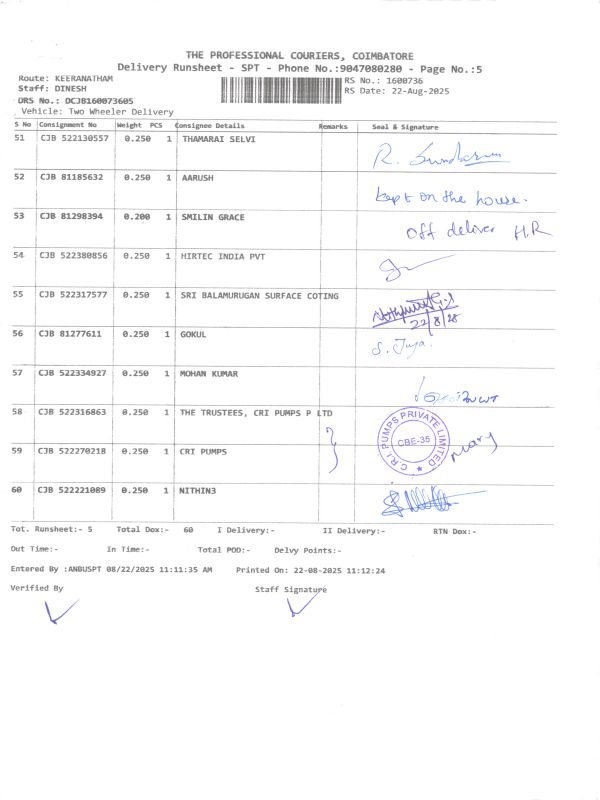 THE PROFESSIONAL COURIERS, COIMBATORE
Delivery Runsheet - SPT - Phone No.:9047080280 - Page No.:5
Route: KEERANATHAM RS No.: 1600736
Staff: DINESH RS Date: 22-Aug-2025
DRS No.: DCJB160073605
Vehicle: Two Wheeler Delivery
S No Consignment No Weight PCS Consignee Details Remarks Seal & Signature
51 CJB 522130557 0.250 1 THAMARAI SELVI R. Sundaram
52 CJB 81185632 0.250 1 AARUSH kept on the house.
53 CJB 81298394 0.200 1 SMILIN GRACE off deliver H.R
54 CJB 522380856 0.250 1 HIRTEC INDIA PVT
55 CJB 522317577 0.250 1 SRI BALAMURUGAN SURFACE COTING
22/8/28
56 CJB 81277611 0.250 1 GOKUL S. Juya.
57 CJB 522334927 0.250 1 MOHAN KUMAR
58 CJB 522316863 0.250 1 THE TRUSTEES, CRI PUMPS P LTD
C.R.I. PUMPS PRIVATE LIMITED
CBE-35
Mary
59 CJB 522270218 0.250 1 CRI PUMPS
60 CJB 522221089 0.250 1 NITHIN3
Tot. Runsheet:- 5 Total Dox:- 60 I Delivery:- II Delivery:- RTN Dox:-
Out Time:- In Time:- Total POD:- Delvy Points:-
Entered By :ANBUSPT 08/22/2025 11:11:35 AM Printed On: 22-08-2025 11:12:24
Verified By Staff Signature